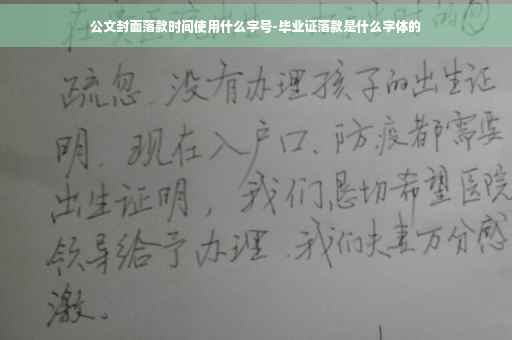 公文封面落款时间使用什么字号-毕业证落款是什么字体的
疏忽、没有办理孩子的出生证
明、现在入户口、防疫都需要
出生证明，我们恳切希望医院
领导给予办理、我们夫妻万分感
激。